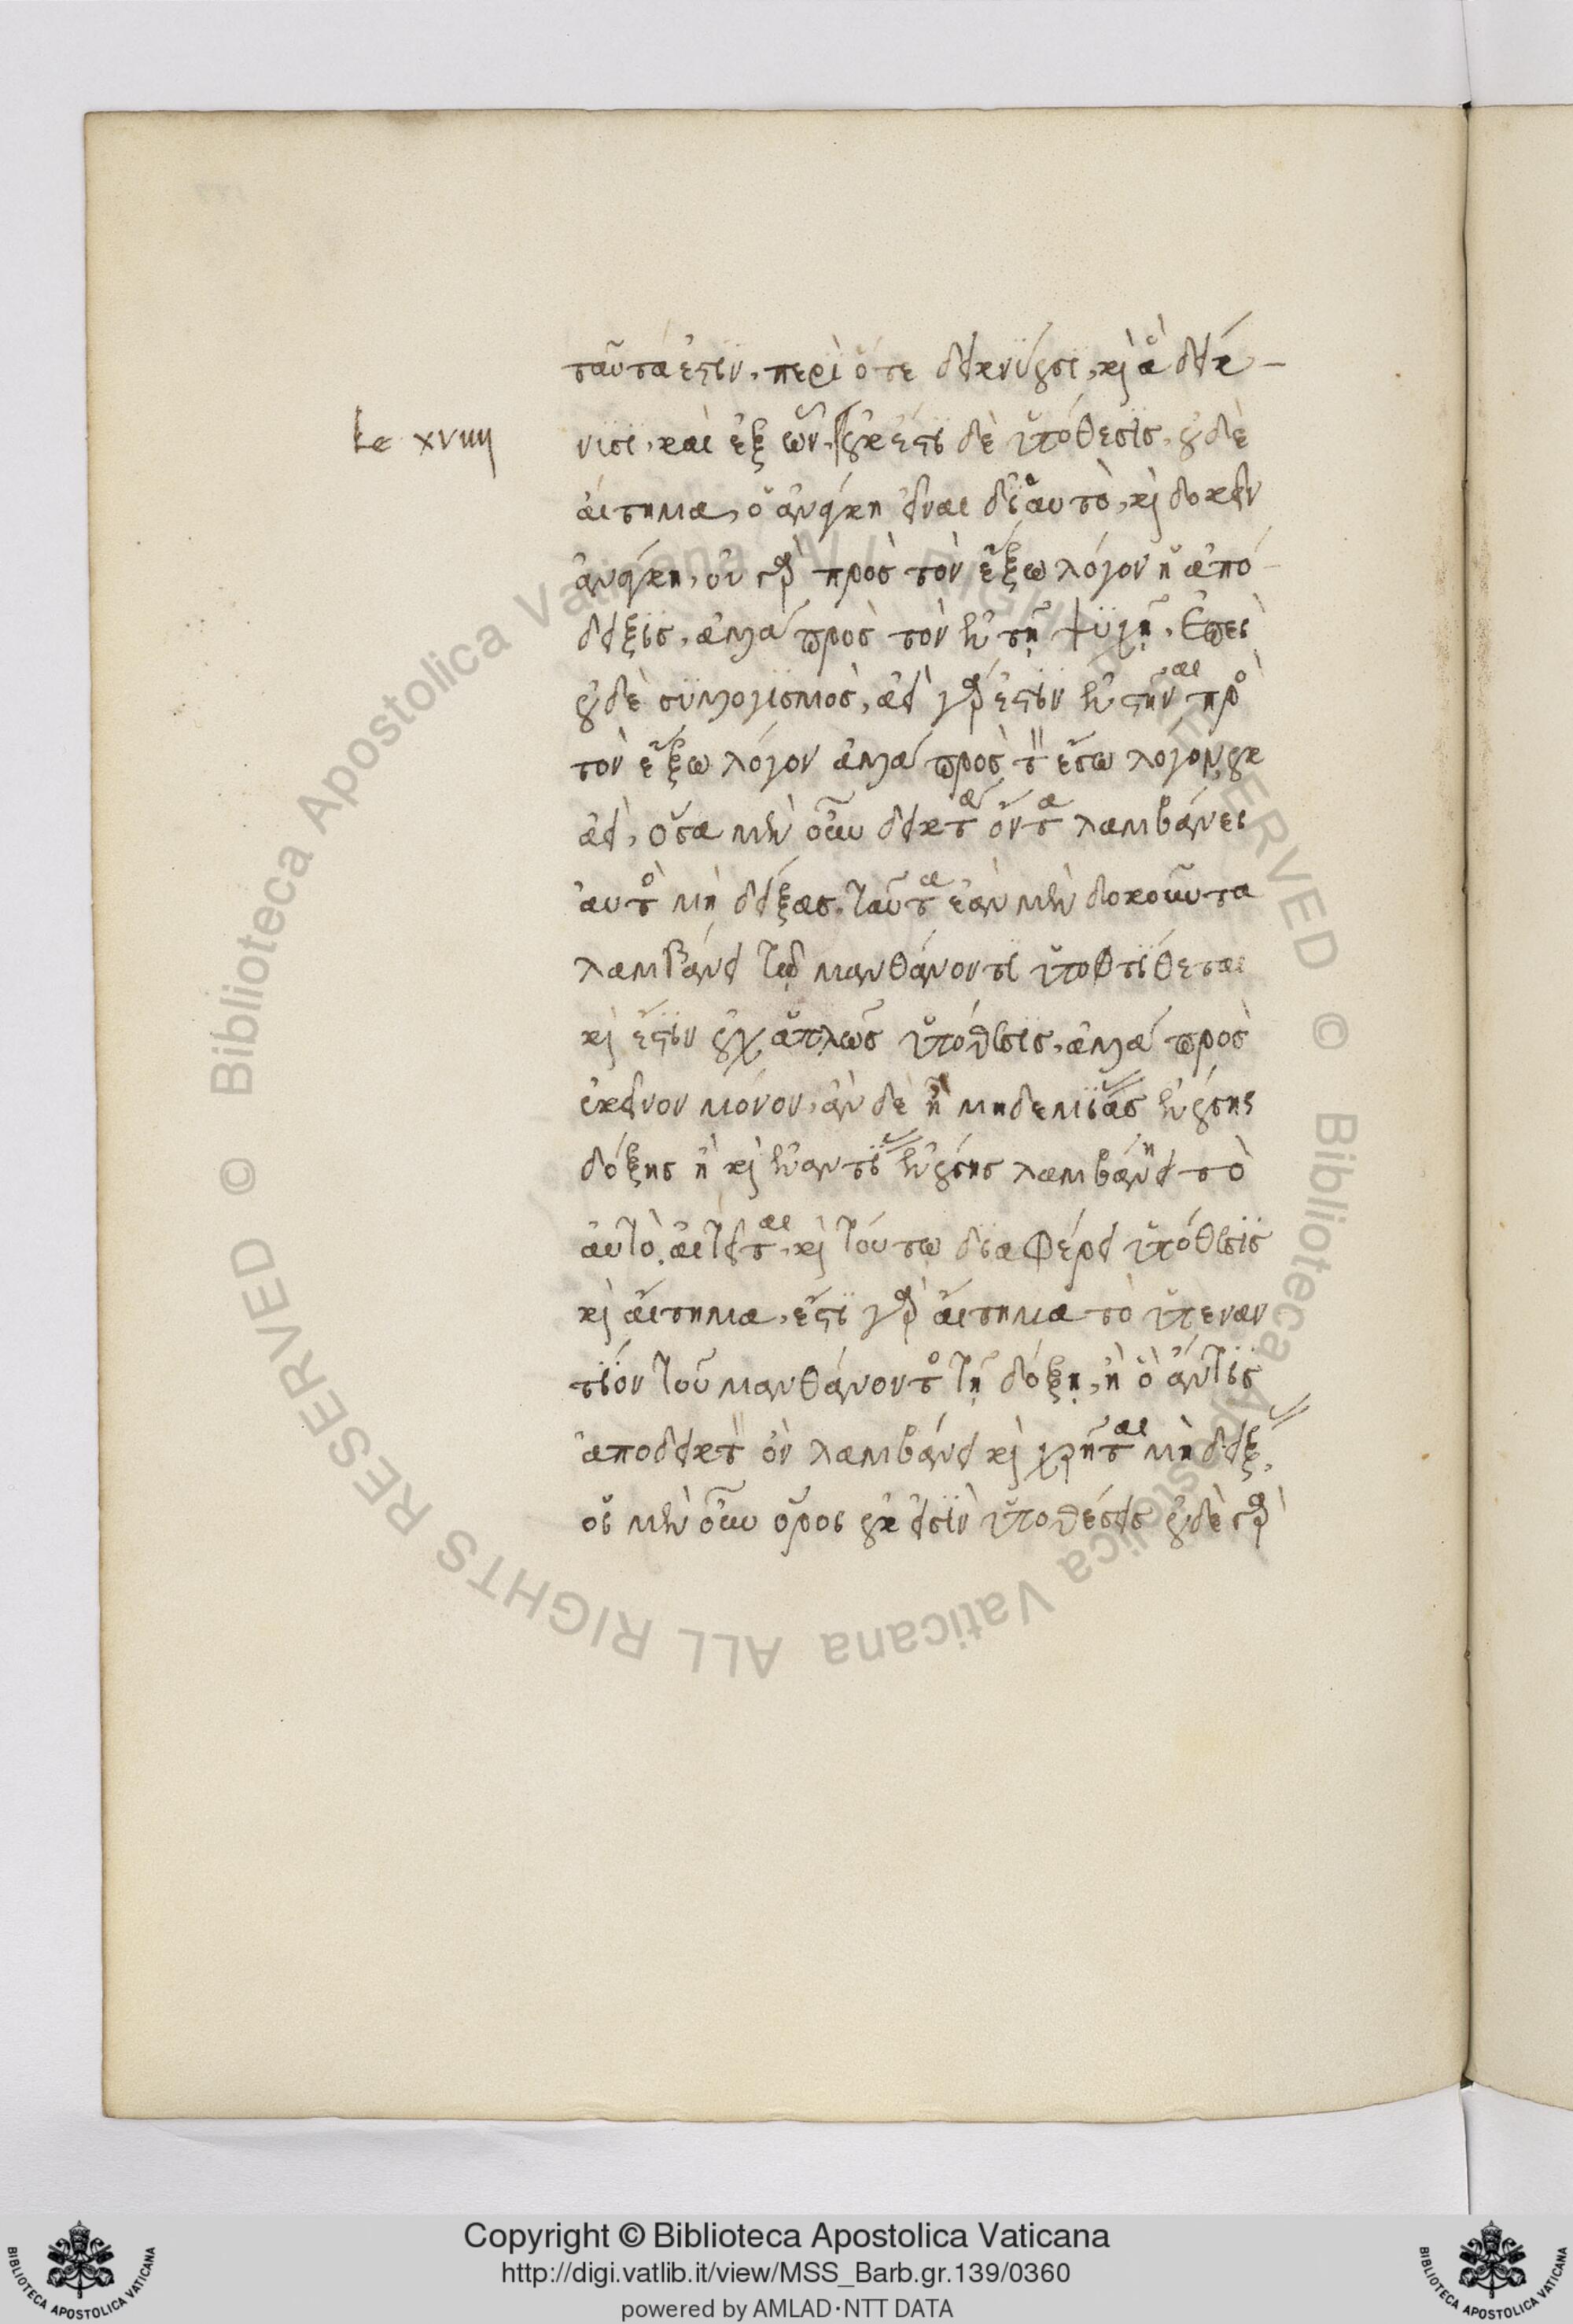 ταῦτά ἐστιν, περὶ ὅ τε δείκνυσι, καὶ ἃ δείκ-
Lc xviiii
νισι, καὶ ἐξ ὧν. οὐκ ἔστι δὲ ὑπόθεσις, οὐδὲ
αἴτημα, ὃ ἀνάγκη εἶναι δι' αυτὸ, καὶ δοκεῖν
ἀνάγκη, οὐ γὰρ πρὸς τὸν ἔξω λόγον ἡ ἀπό-
δειξις, ἀλλὰ πρὸς τὸν ἐν τῇ ψυχῇ, Ἐπεὶ
οὐδὲ συλλογισμὸς, ἀεὶ γάρ ἐστιν ἐνστῆναι πρὸς
τὸν ἔξω λόγον ἀλλὰ πρὸς τὸν ἔσω λόγον οὐκ
ἀεὶ, ὅσα μὲν οὖν δεικτὰ ὄντα λαμβάνει
αὐτὸς μὴ δείξας, ταῦτα ἐὰν μὲν δοκοῦντα
λαμβάνει τῷ μανθάνοντι ὑποτίθεται
καὶ ἔστιν οὐχ ἁπλῶς ὑπόθεσις, ἀλλὰ πρὸς
ἐκεῖνον μόνον, ἂν δὲ ἢ μηδεμιᾶς ἐνούσης
δόξης ἢ καὶ ἐναντίας ἐνούσης λαμβάνει τὸ
αὐτὸ, αἰτεῖται, καὶ τούτω διαφέρει ὑπόθεσις
καὶ αἴτημα, ἔστι γὰρ αἴτημα τὸ ὑπεναν
τίον τοῦ μανθάνοντος τῇ δόξῃ, ἢ ὃ ἄν τις
ἀποδεικτὸν ὂν λαμβάνει καὶ χρῆται μὴ δείξας,
οἱ μὲν οὖν ὅροι οὐκ εἰσὶν ὑποθέσεις οὐδὲ γὰρ
© Biblioteca Apostolica Vaticana ALL RIGHTS RESERVED © Biblioteca Apostolica Vaticana ALL RIGHTS RESERVED
Copyright © Biblioteca Apostolica Vaticana
http://digi.vatlib.it/view/MSS_Barb.gr.139/0360
powered by AMLAD·NTT DATA
BIBLIOTECA APOSTOLICA VATICANA
BIBLIOTECA APOSTOLICA VATICANA